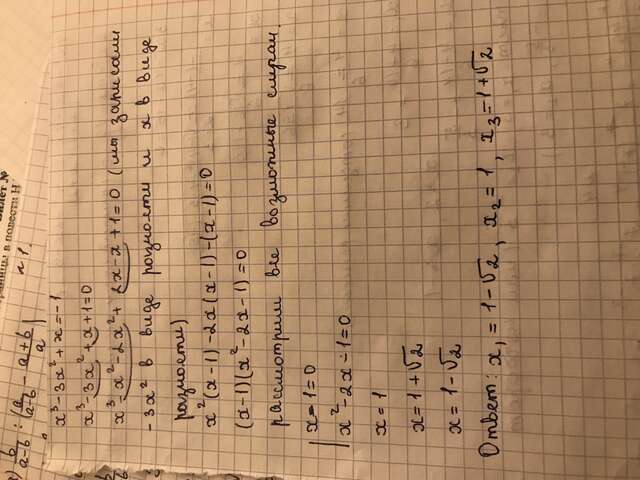 а) b/(a-b) : (a/(a-b) - (a+b)/a)
№
раницы в повести Н
n 1.
x³-3x²+x=-1
x³-3x²+x+1=0
x³-x²-2x²+2x-x+1=0 (мы записали
-3x² в виде разности и x в виде
разности)
x²(x-1)-2x(x-1)-(x-1)=0
(x-1)(x²-2x-1)=0
рассмотрим все возможные случаи.
x-1=0
x²-2x-1=0
x=1
x=1+√2
x=1-√2
Ответ: x₁=1-√2, x₂=1, x₃=1+√2